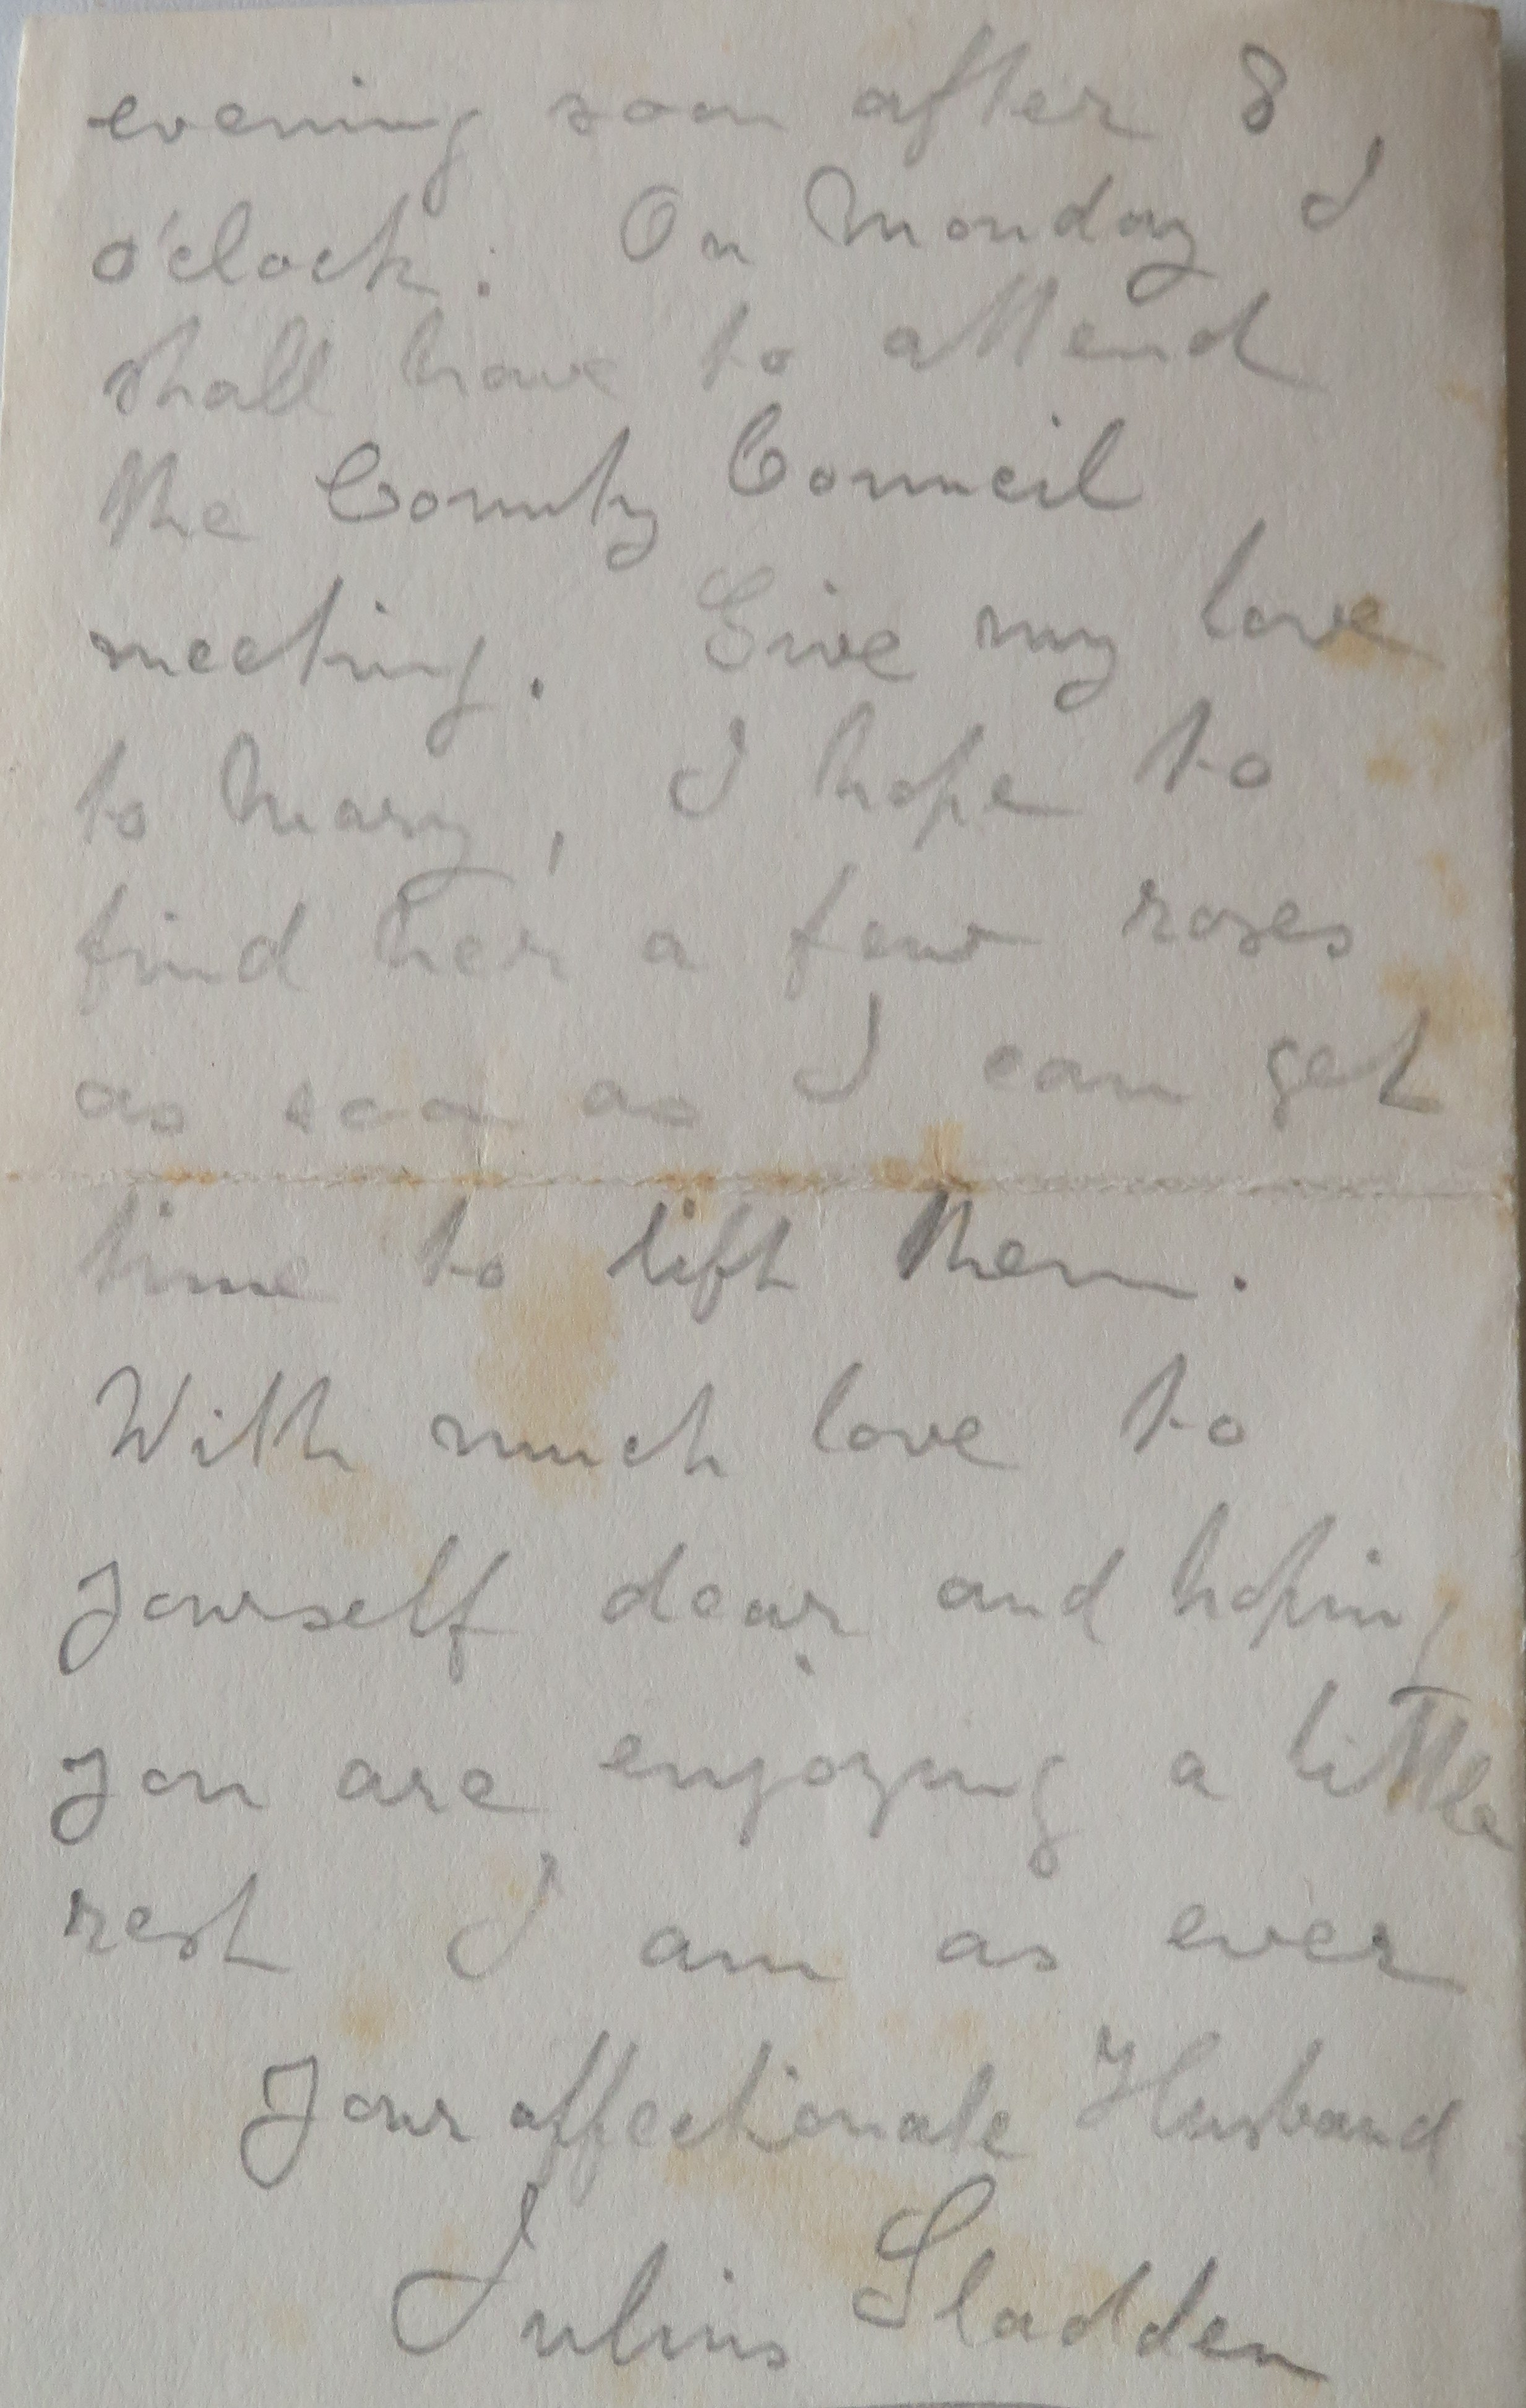 evening soon after 8
o'clock. On Monday I
shall have to attend
the County Council
meeting. Give my love
to Mary, I hope to
find her a few roses
as soon as I can get
time to lift them.
With much love to
yourself dear and hoping
you are enjoying a little
rest I am as ever
Your affectionate Husband
Julius Sladden